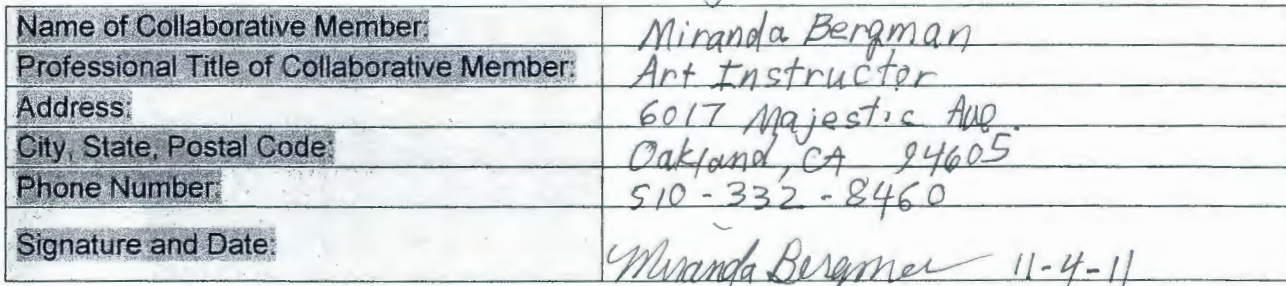 Name of Collaborative Member: Miranda Bergman
Professional Title of Collaborative Member: Art Instructor
Address: 6017 Majestic Ave.
City, State, Postal Code: Oakland, CA 94605
Phone Number: 510-332-8460
Signature and Date: Miranda Bergman 11-4-11